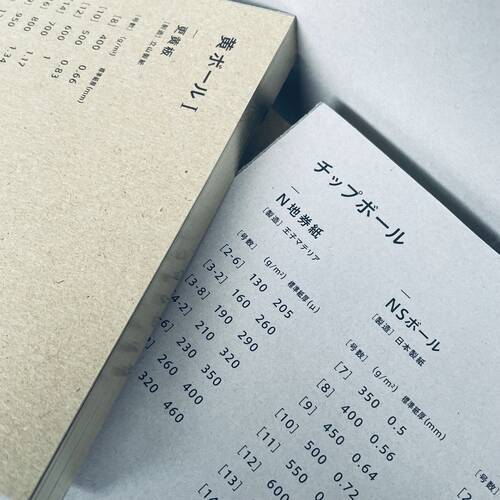 黄ボール I
更黄板
[製造] 立山製紙
[号数] (g/m²) 標準紙厚(mm)
[8] 400 0.66
[10] 500 0.83
[12] 600 1
[14] 700 1.17
800 1.34
950
チップボール
N地券紙
[製造] 王子マテリア
[号数] (g/m²) 標準紙厚(μ)
[2-6] 130 205
[3-2] 160 260
[3-8] 190 290
4-2] 210 320
230 350
260 400
320 460
NSボール
[製造] 日本製紙
[号数] (g/m²) 標準紙厚(mm)
[7] 350 0.5
[8] 400 0.56
[9] 450 0.64
[10] 500 0.72
[11] 550
[12] 600
[13]
[号数]
[8]